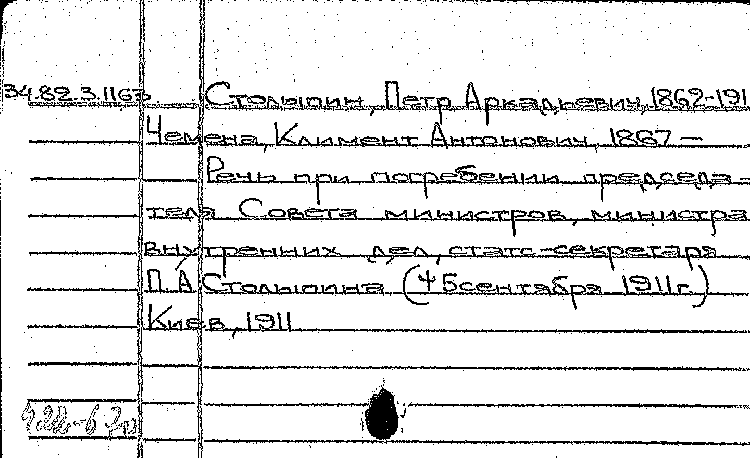 34.82.3.1163 Столыпин, Петр Аркадьевич, 1862-191
Чемена, Климент Антонович, 1867 —
Речь при погребении председа-
теля Совета министров, министра
внутренних дел, статс-секретаря
П.А. Столыпина († 5 сентября 1911 г.)
Киев, 1911